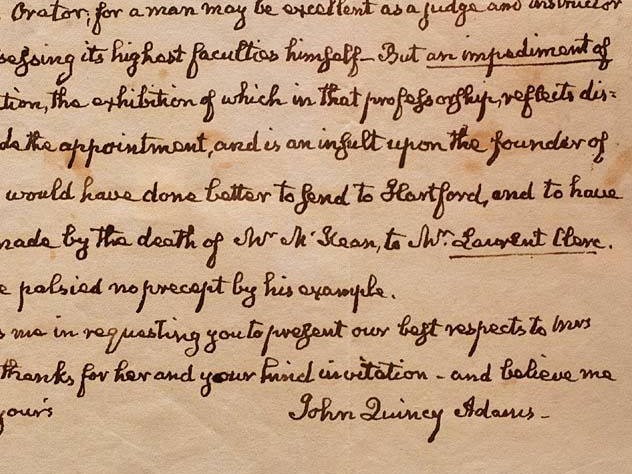 Orator; for a man may be excellent as a judge and instructor
sessing its highest faculties himself— But an impediment of
tion, the exhibition of which in that professorship, reflects dis=
de the appointment, and is an insult upon the founder of
would have done better to send to Hartford, and to have
made by the death of Mr McKean, to Mr. Laurent Clerc.
e palsied no precept by his example.
s me in requesting you to present our best respects to Mrs
thanks for her and your kind invitation - and believe me
yours John Quincy Adams-